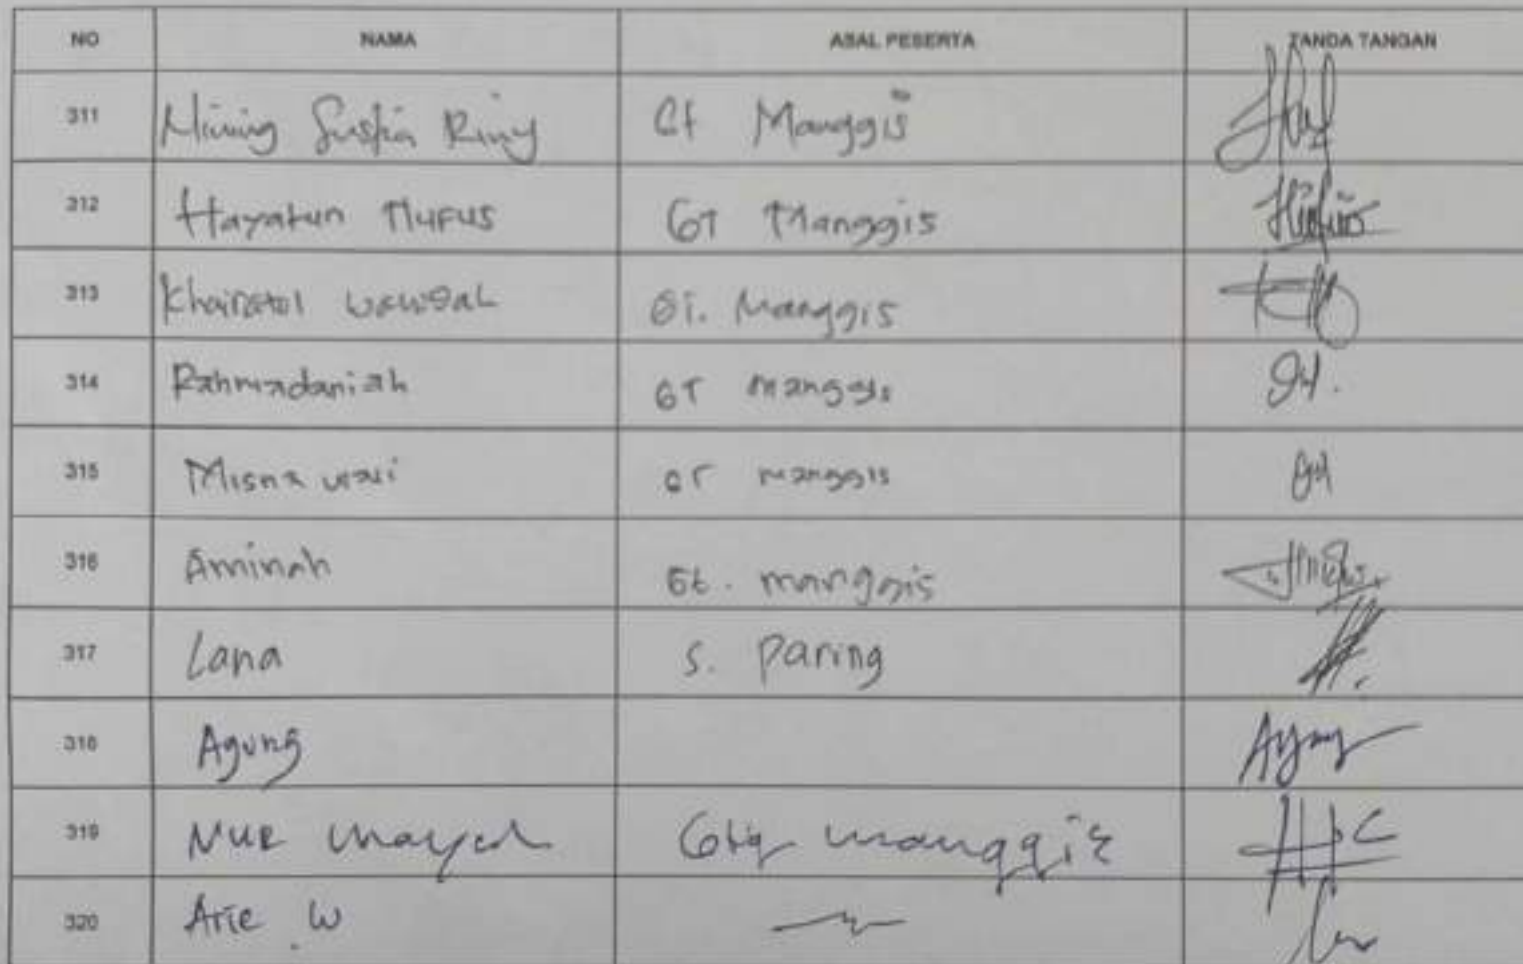 NO NAMA ASAL PESERTA TANDA TANGAN
311 Susfia Riny Gt Manggis
312 Hayatun Nufus GT Manggis
313 Khairatol Gt. Manggis
314 Rahmadaniah GT manggis
315 Misna wati GT manggis
316 Aminah Gt. manggis
317 Lana S. Paring
318 Agung Agung
319 NUR manggis
320 Arie W